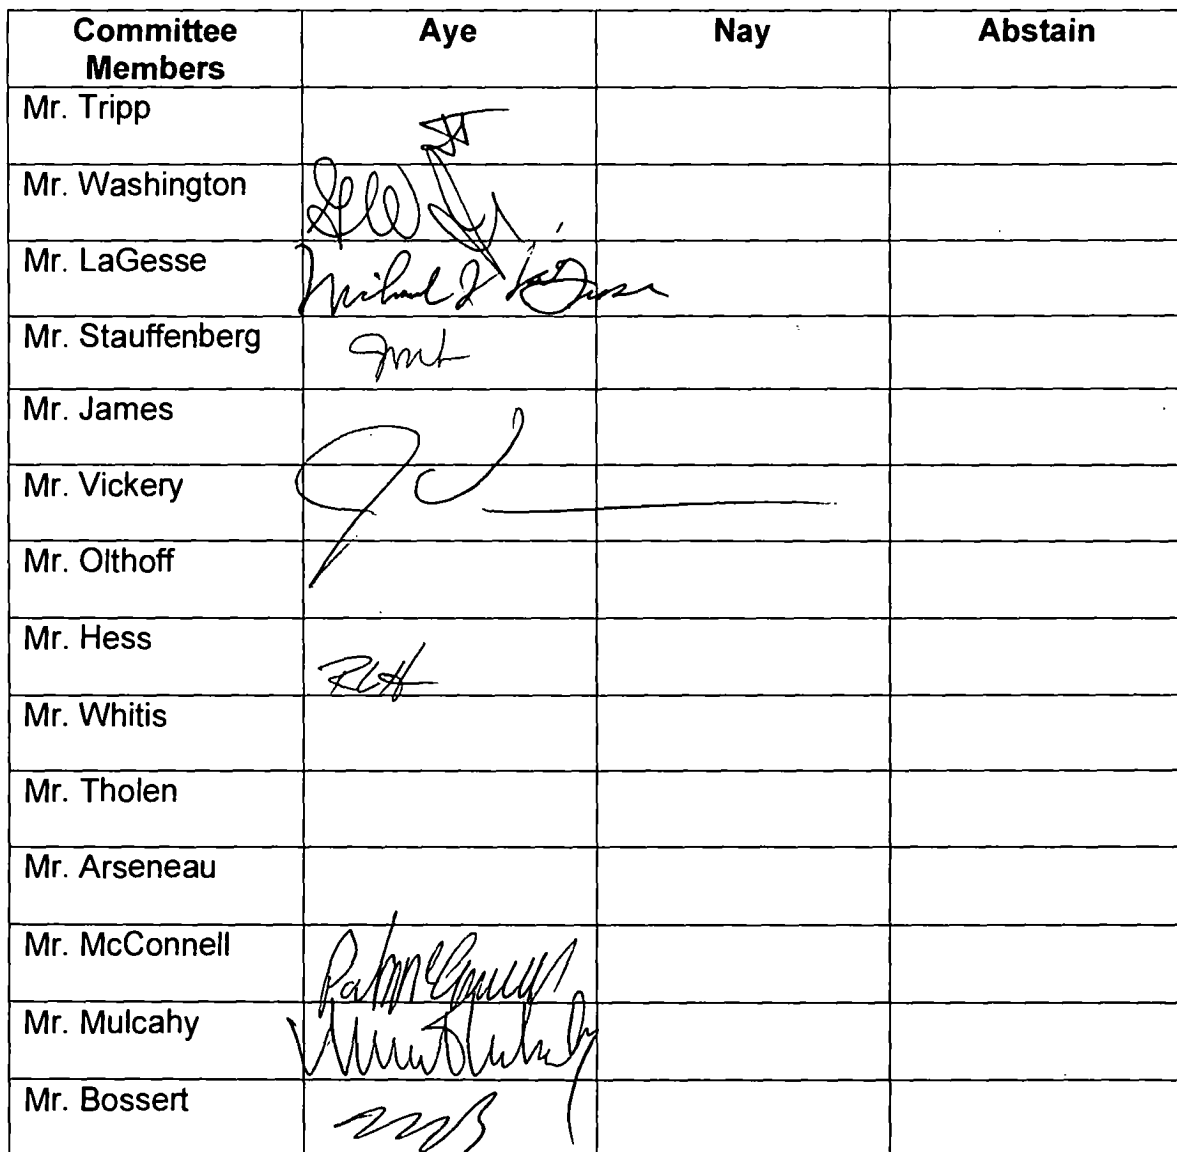 Committee Members Aye Nay Abstain
Mr. Tripp
Mr. Washington
Mr. LaGesse Michael J LaGesse
Mr. Stauffenberg
Mr. James
Mr. Vickery
Mr. Olthoff
Mr. Hess RLH
Mr. Whitis
Mr. Tholen
Mr. Arseneau
Mr. McConnell Pat McConnell
Mr. Mulcahy
Mr. Bossert